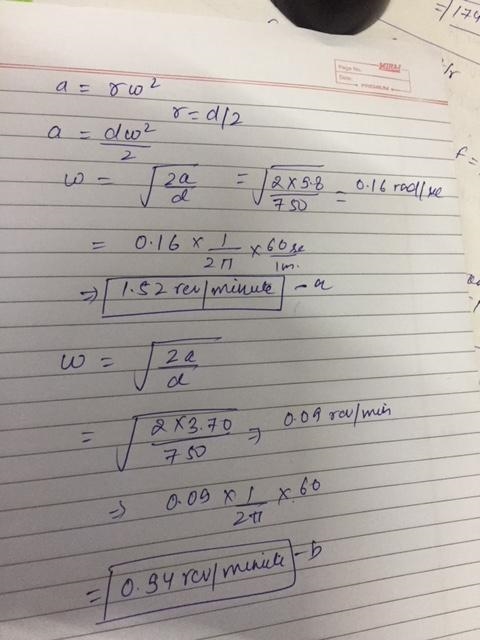 =)174
Page No. MIRAJ
Date: PREMIUM
a = rω²
r = d/2
a = dω²/2
ω = √(2a/d) = √(2×5.8/750) = 0.16 rad/se
= 0.16 × 1/2π × 60se/1m.
⇒ 1.52 rev/minute - a
ω = √(2a/d)
= √(2×3.70/750) ⇒ 0.09 rev/min
⇒ 0.09 × 1/2π × 60
= 0.94 rev/minute - b